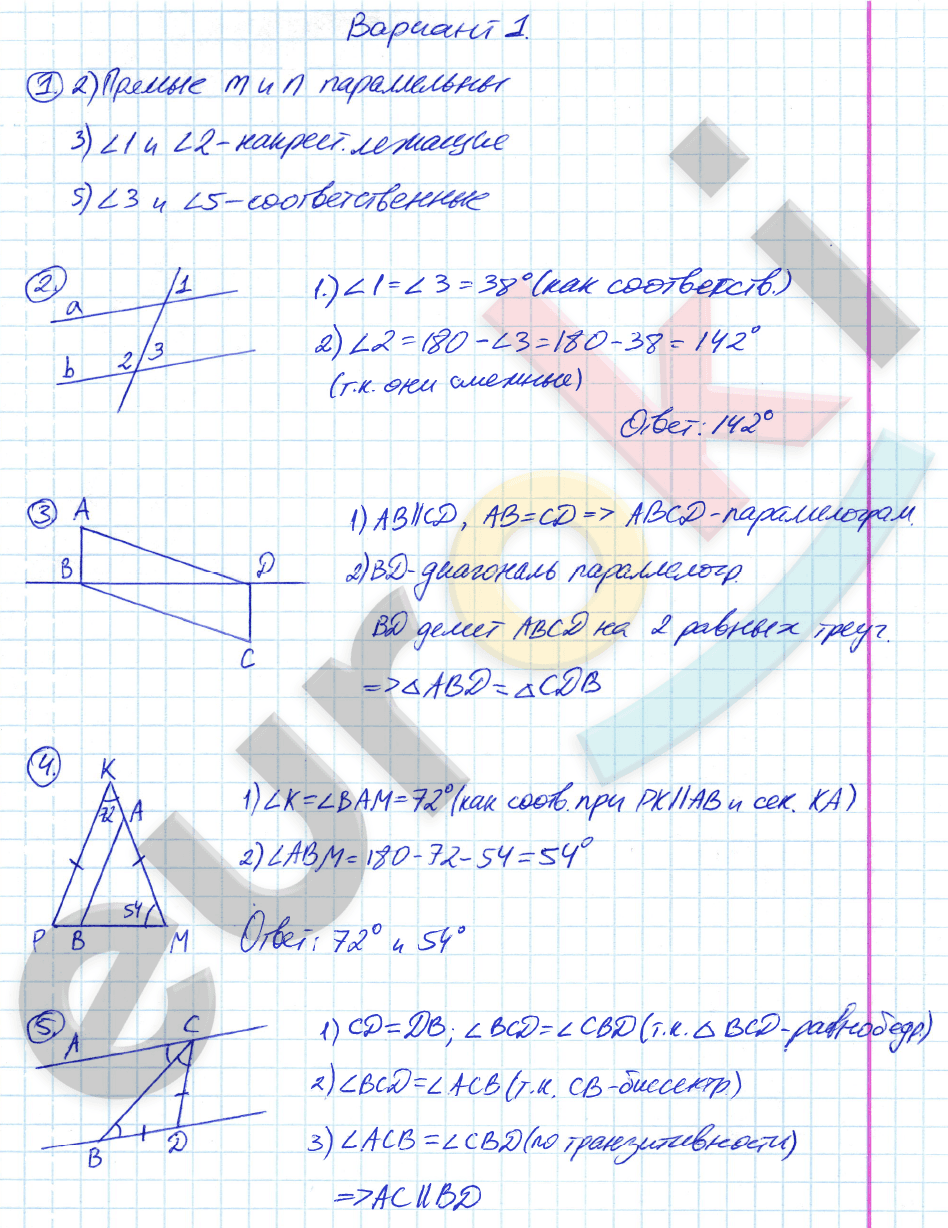 Вариант 1.
1. 2) Прямые m и n параллельны
3) ∠1 и ∠2 - накрест. лежащие
5) ∠3 и ∠5 - соответственные
2.
a
1
b
2 3
1.) ∠1 = ∠3 = 38° (как соответств.)
2) ∠2 = 180 - ∠3 = 180 - 38 = 142°
(т.к. они смежные)
Ответ: 142°
3
A
B
D
C
1) AB∥CD, AB=CD => ABCD - параллелограм.
2) BD - диагональ параллелогр.
BD делит ABCD на 2 равных треуг.
=> △ABD = △CDB
4.
K
72
A
54
P B M
1) ∠K = ∠BAM = 72° (как соотв. при PK∥AB и сек. KA)
2) ∠ABM = 180 - 72 - 54 = 54°
Ответ: 72° и 54°
5.
A
C
B
D
1) CD = DB; ∠BCD = ∠CBD (т.к. △ BCD - равнобедр)
2) ∠BCD = ∠ACB (т.к. CB - биссектр.)
3) ∠ACB = ∠CBD (по транзитивности)
=> AC∥BD
euroki